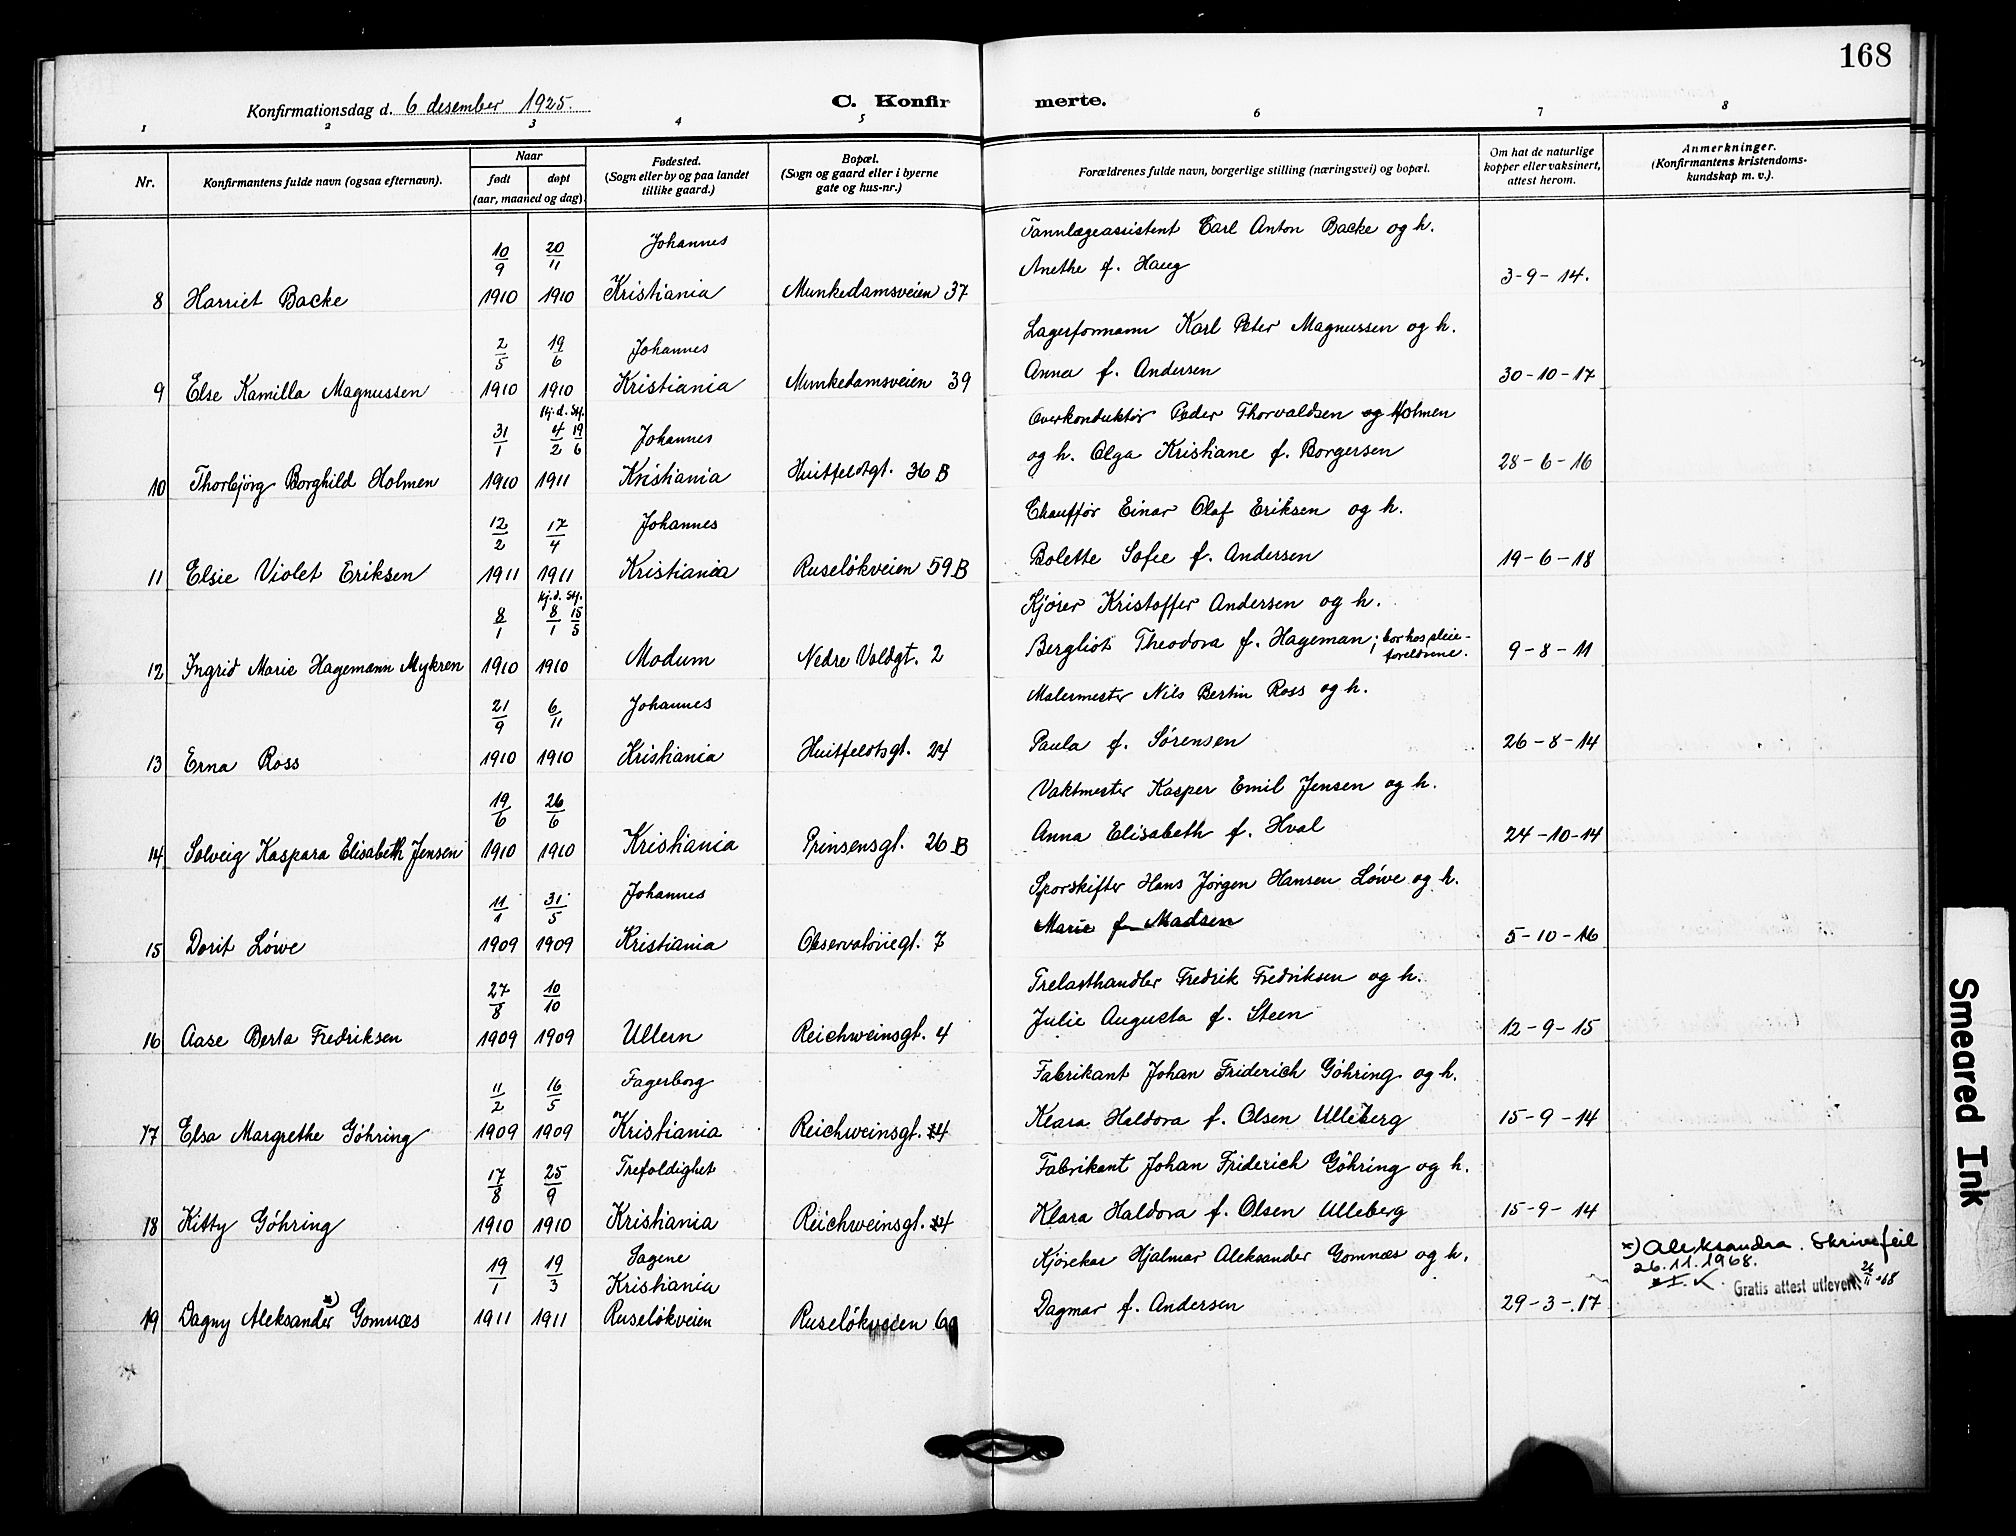 168
Konfirmationsdag d. 6 desember 1925.
C. Konfir
merte.
1 2 3 4 5 6 7 8
Nr.
Konfirmantens fulde navn (ogsaa efternavn).
Naar
født døpt
(aar, maaned og dag).
Fødested.
(Sogn eller by og paa landet
tillike gaard.)
Bopæl.
(Sogn og gaard eller i byerne
gate og hus-nr.)
Forældrenes fulde navn, borgerlige stilling (næringsvei) og bopæl.
Om hat de naturlige
kopper eller vaksinert,
attest herom.
Anmerkninger.
(Konfirmantens kristendoms-
kundskap m. v.).
10/9 20/11 Johannes Tannlægeassistent Carl Anton Backe og h.
Anethe f. Haug
8 Harriet Backe 1910 1910 Kristiania Munkedamsveien 37 3-9-14.
2/5 19/6 Johannes Lagerformann Karl Peter Magnussen og h.
9 Else Kamilla Magnussen 1910 1910 Kristiania Munkedamsveien 39 Anna f. Andersen 30-10-17
Hj.d. Stf.
31/1 4/2 19/6 Johannes Overkonduktør Peder Thorvaldsen og Holmen
10 Thorbjörg Borghild Holmen 1910 1911 Kristiania Huitfeldtgt. 36 B og h. Olga Kristiane f. Borgersen 28-6-16
12/2 17/4 Johannes Chauffør Einar Olaf Eriksen og h.
11 Elsie Violet Eriksen 1911 1911 Kristiania Ruseløkveien 59 B Bolette Sofie f. Andersen 19-6-18
Hj.d. Stf.
8/1 8/1 15/5 Kjører Kristoffer Andersen og h.
12 Ingrid Marie Hagemann Mykren 1910 1910 Modum Nedre Voldgt. 2 Bergliot Theodora f. Hageman; bor hos pleie-
foreldrene. 9-8-11
21/9 6/11 Johannes Malermester Nils Bertin Ross og h.
13 Erna Ross 1910 1910 Kristiania Huitfeldtsgt. 24 Paula f. Sørensen 26-8-14
19/6 26/6 Vaktmester Kasper Emil Jensen og h.
14 Solveig Kaspara Elisabeth Jensen 1910 1910 Kristiania Prinsensgt. 26 B Anna Elisabeth f. Hval 24-10-14
11/1 31/5 Johannes Sporskifter Hans Jørgen Hansen Løwe og h.
15 Dorit Løwe 1909 1909 Kristiania Observatoriegt. 7 Marie f. Madsen 5-10-16
27/8 10/10 Trelasthandler Fredrik Fredriksen og h.
16 Aase Berta Fredriksen 1909 1909 Ullern Reichweinsgt. 4 Julie Augusta f. Steen 12-9-15
11/2 16/5 Fagerborg Fabrikant Johan Friderich Göhring og h.
17 Elsa Margrethe Göhring 1909 1909 Kristiania Reichweinsgt. 4 Klara Haldora f. Olsen Ulleberg 15-9-14
17/8 25/9 Trefoldighet Fabrikant Johan Friderich Göhring og h.
18 Kitty Göhring 1910 1910 Kristiania Reichweinsgt. 4 Klara Haldora f. Olsen Ulleberg 15-9-14
19/1 19/3 Sagene Kjørekar Hjalmar Aleksander Gomnæs og h.
Kristiania
19 Dagny Aleksander x) Gomnæs 1911 1911 Ruseløkveien Ruseløkveien Dagmar f. Andersen 29-3-17
x) Aleksandra. Skrivefeil
26.11.1968.
Gratis attest utlevert. 26/11-68
Smeared Ink